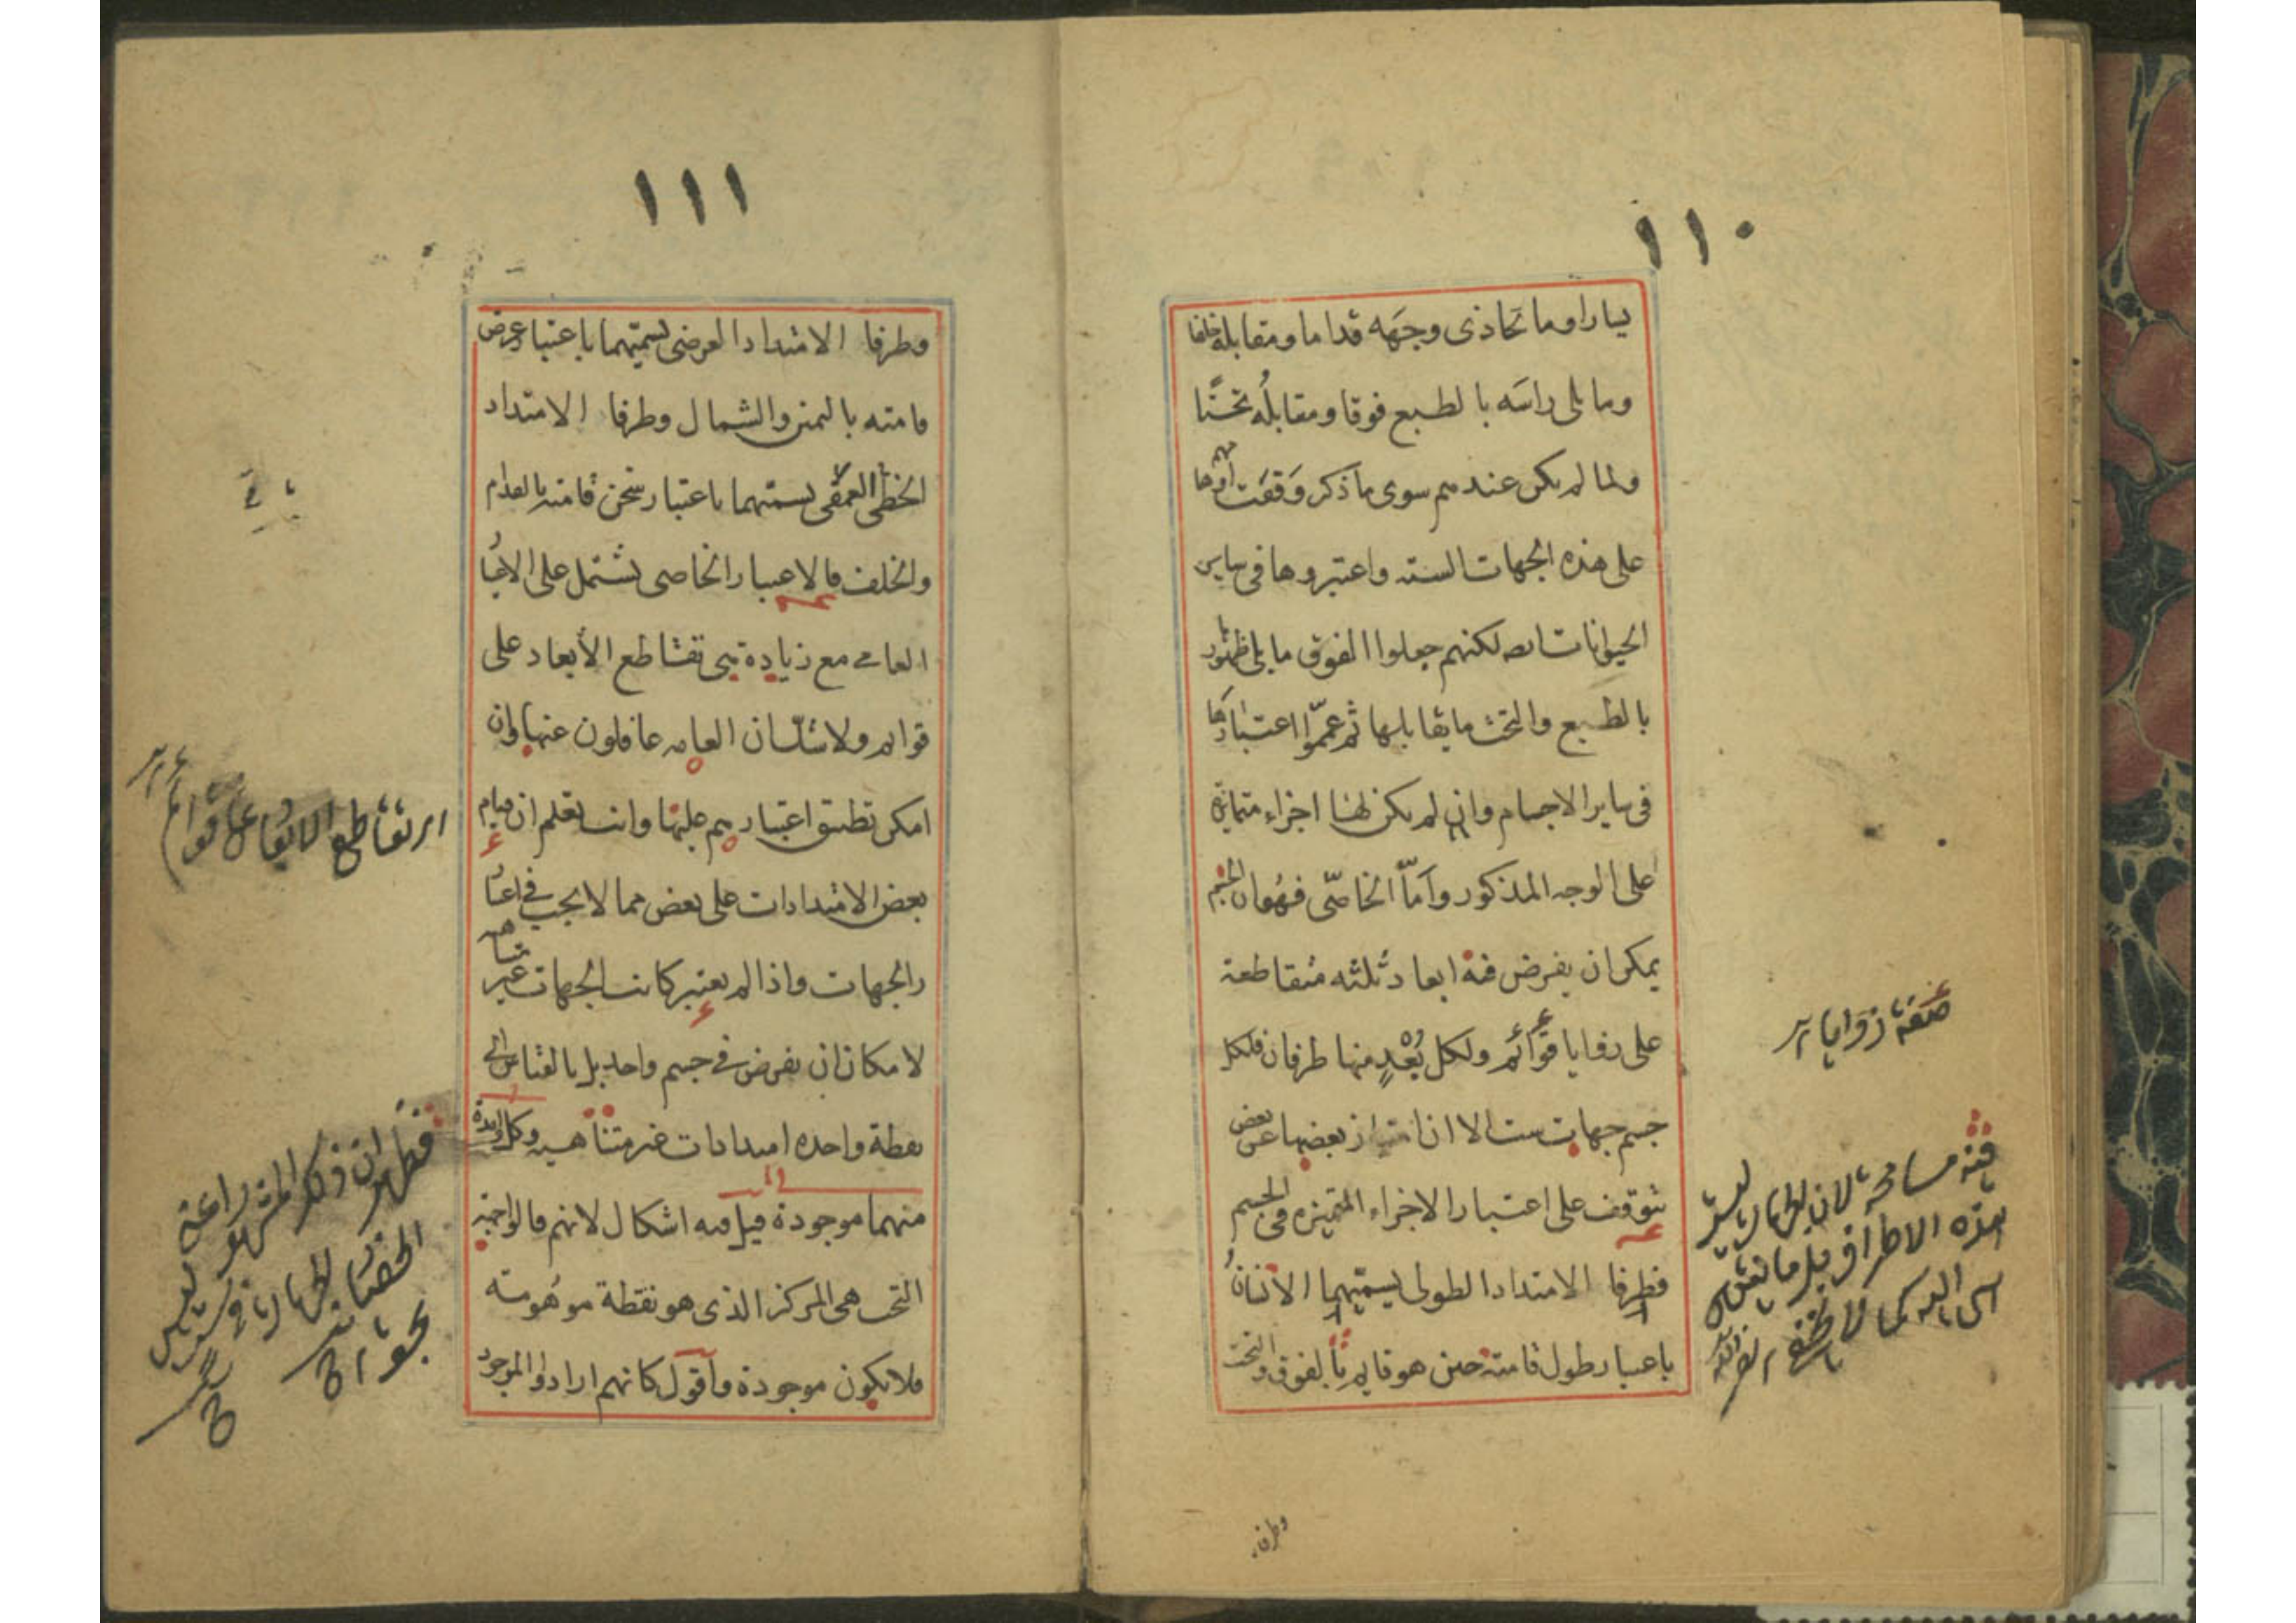 ١١٠
يسارا وما تحاذى وجهه قداما ومقابله خلفا
وما يلى راسه بالطبع فوقا ومقابله تحتا
ولما لم يكن عندهم سوى ما ذكر وقفت اوهامهم
على هذه الجهات السته واعتبروها فى ساير
الحيوانات ايضا لكنهم جعلوا الفوق ما يلى ظهورها
بالطبع والتحت ما يقابلها ثم عمموا اعتبارها
فى ساير الاجسام وان لم يكن لها اجزاء متمايزة
على الوجه المذكور واما الخاصى فهو ان الجسم
يمكن ان يفرض فيه ابعاد ثلثه متقاطعة
على زوايا قوائم ولكل بعد منها طرفان فلكل
جسم جهات ست الا ان امتياز بعضها عن بعض
يتوقف على اعتبار الاجزاء المتميزه فى الجسم
فطرفا الامتداد الطولى يسميهما الانسان
باعتبار طول قامته حين هو قايم بالفوق والتحت
صفة زوايا
فيه مسامحة لان الجهات ليست
هذه الاطراف بل ما ينتهى
وطرفا
١١١
وطرفا الامتداد العرضى يسميهما باعتبار عرض
قامته باليمين والشمال وطرفا الامتداد
الخطى العمقى يسميهما باعتبار ثخن قامته بالقدام
والخلف فالاعتبار الخاصى يشتمل على الاعتبار
العامى مع زيادة هى تقاطع الأبعاد على
قوايم ولا شك ان العامه غافلون عنها وان
امكن تطبيق اعتبارهم عليها وانت تعلم ان قيام
بعض الامتدادات على بعض مما لا يجب فى اعتبا
ر الجهات واذا لم يعتبر كانت الجهات غير متناهيه
لامكان ان يفرض فى جسم واحد بل بالقياس الى
نقطة واحده امتدادات غير متناهيه وكل واحدة
منهما موجودة قيل فيه اشكال لانهم قالوا جهة
التحت هى المركز الذى هو نقطة موهومة
فلا يكون موجودة واقول كانهم ارادوا بالموجود
اى تقاطع الابعاد على قوائم
فظهر ان ذكر المشهور